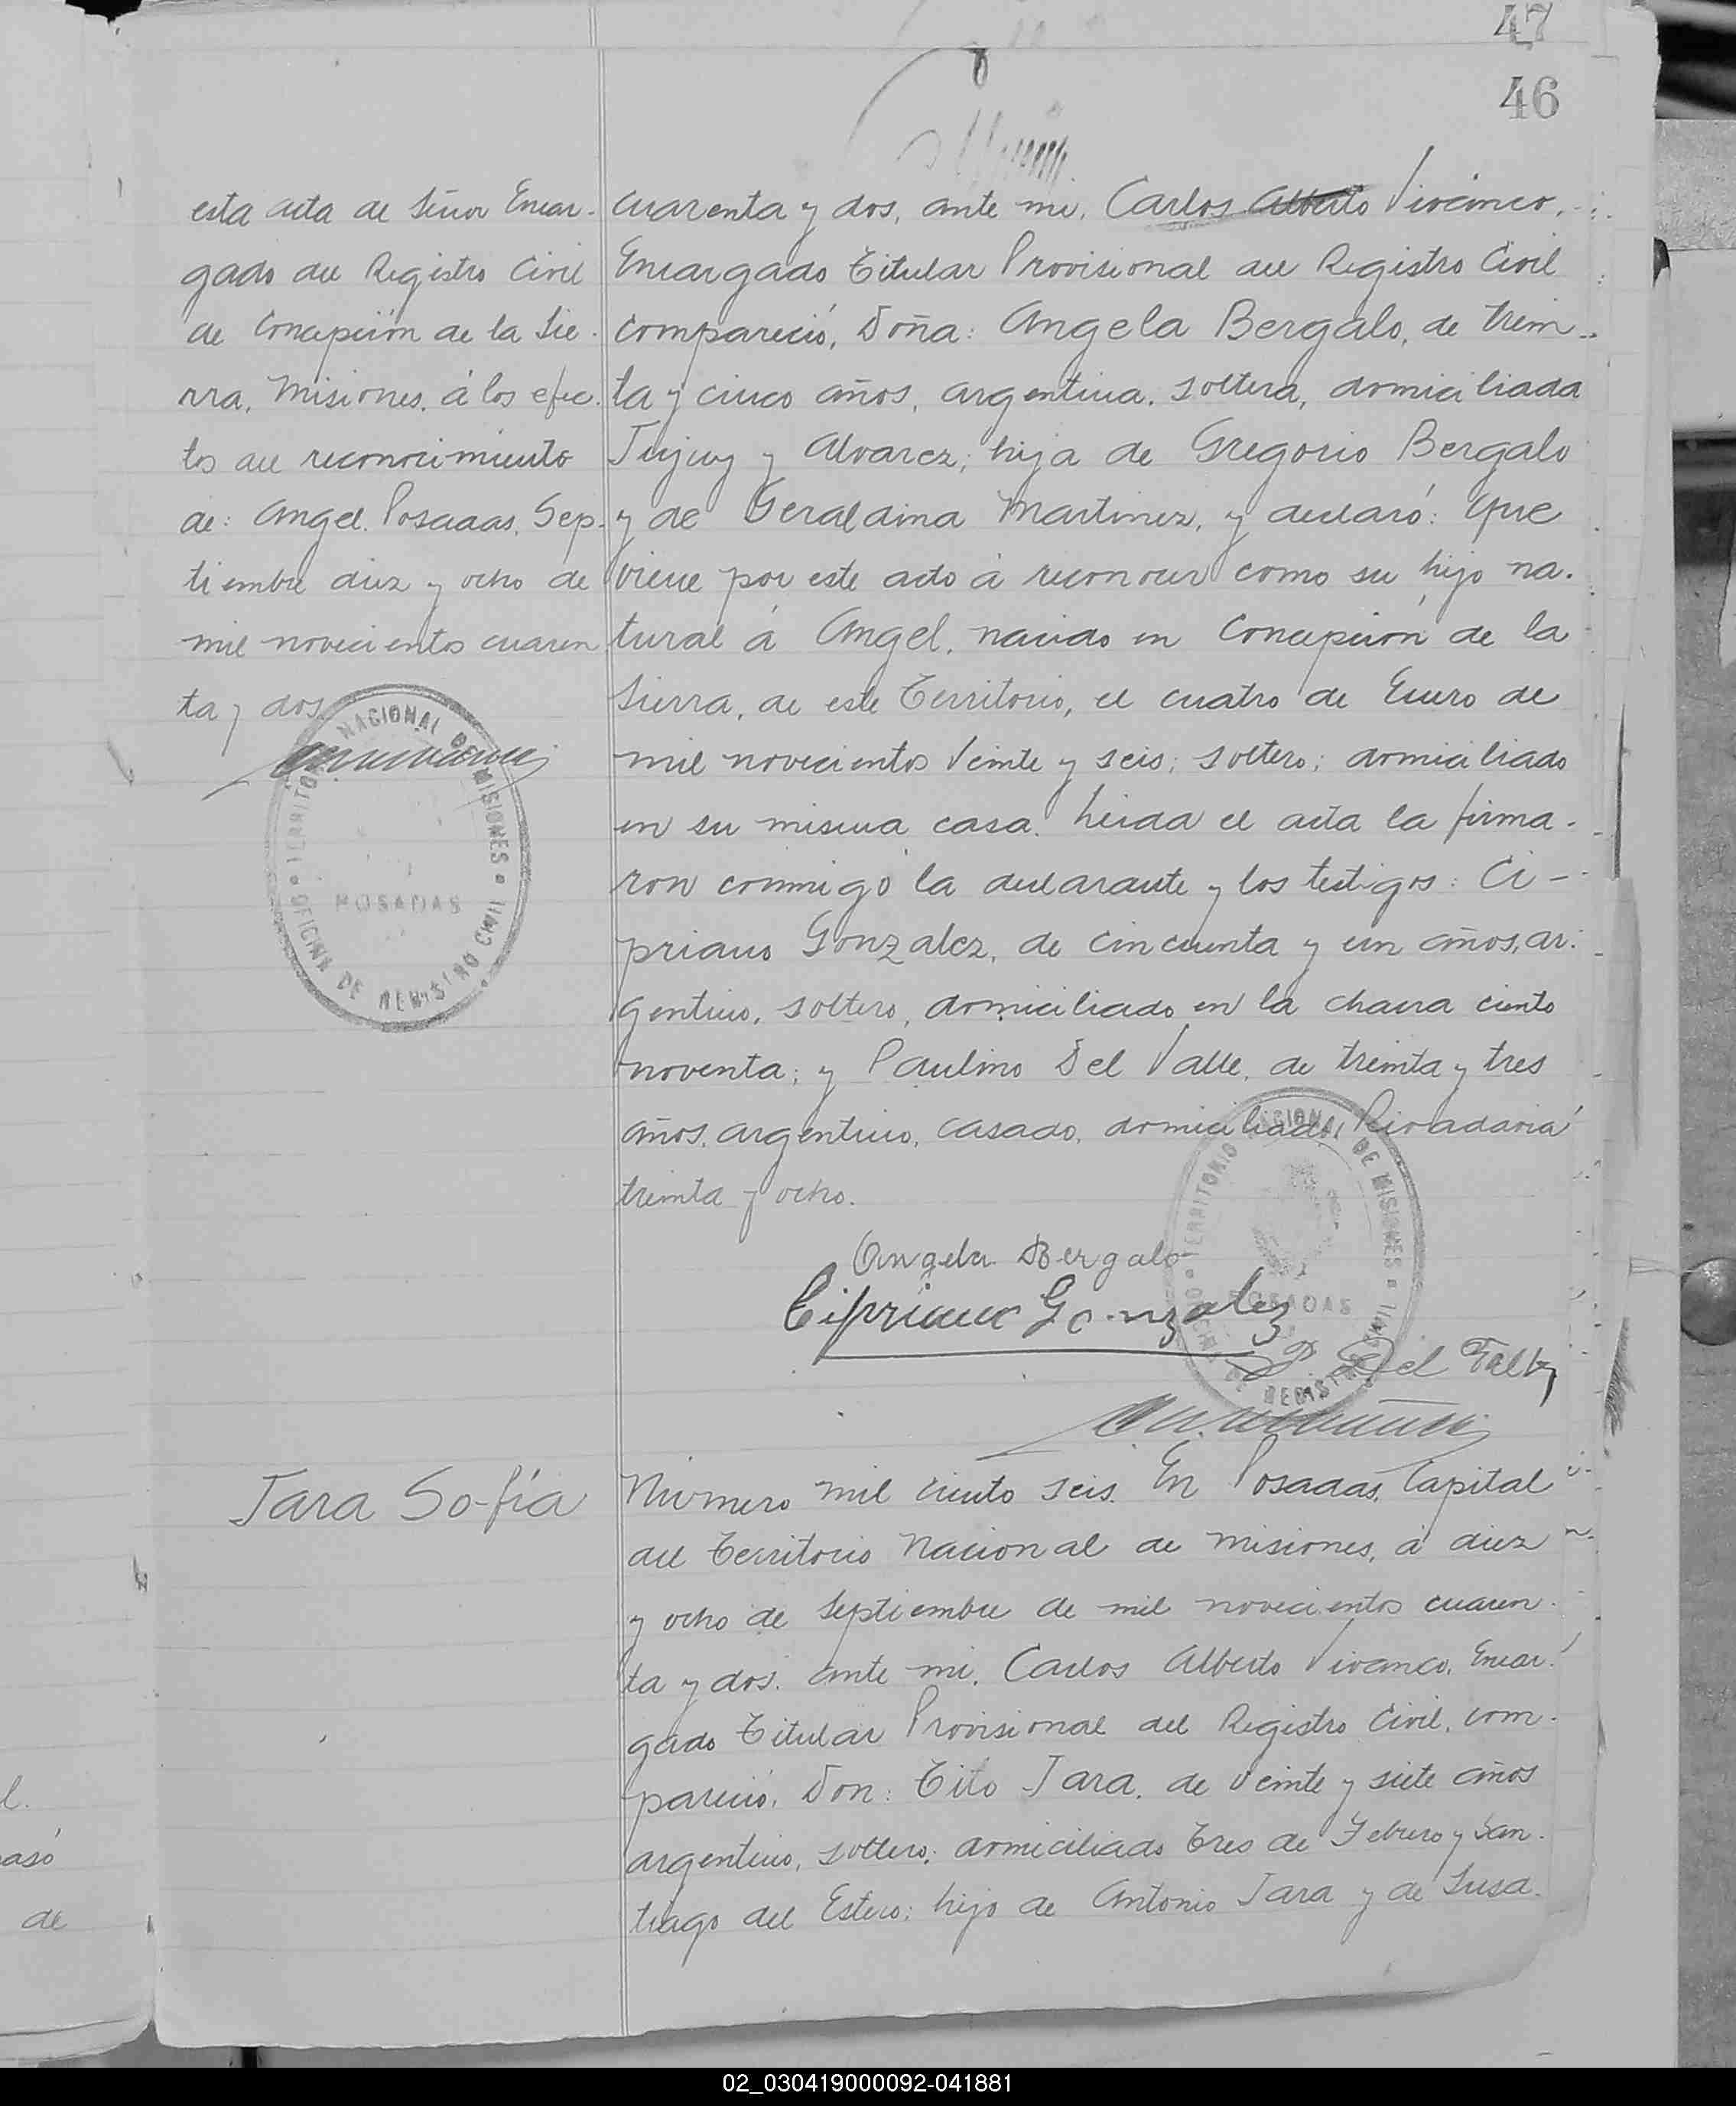 47
46
esta acta al Señor Encar-
gado del Registro Civil
de Concepción de la Sie-
rra, Misiones, á los efec-
tos del reconocimiento
de: Angel. Posadas, Sep-
tiembre diez y ocho de
mil novecientos cuaren
ta y dos.
TERRITORIO NACIONAL DE MISIONES
POSADAS
OFICINA DE REGISTRO CIVIL
cuarenta y dos, ante mi, Carlos Alberto Vivanco,
Encargado Titular Provisional del Registro Civil
compareció, Doña: Angela Bergalo, de trein-
ta y cinco años, argentina, soltera, domiciliada
Jujuy y Alvarez; hija de Gregorio Bergalo
y de Geraldina Martinez, y declaró: Que
viene por este acto á reconocer como su hijo na-
tural á Angel, nacido en Concepción de la
Sierra, de este Territorio, el cuatro de Enero de
mil novecientos veinte y seis; soltero; domiciliado
en su misma casa. Leida el acta la firma-
ron conmigo la declarante y los testigos: Ci-
priano Gonzalez, de cincuenta y un años, ar-
gentino, soltero, domiciliado en la chacra ciento
noventa; y Paulino Del Valle, de treinta y tres
años, argentino, casado, domiciliado Rivadavia
treinta y ocho.
TERRITORIO NACIONAL DE MISIONES
POSADAS
OFICINA DE REGISTRO CIVIL
Angela Bergalo
Cipriano Gonzalez
P. Del Valle
Jara Sofía
Número mil ciento seis. En Posadas, Capital
del Territorio Nacional de Misiones, á diez
y ocho de Septiembre de mil novecientos cuaren-
ta y dos, ante mi, Carlos Alberto Vivanco, Encar-
gado Titular Provisional del Registro Civil, com-
pareció, Don: Tito Jara, de veinte y siete años
argentino, soltero, domiciliado Tres de Febrero y San-
tiago del Estero; hijo de Antonio Jara y de Lusa-
l.
asó
de
02_030419000092-041881